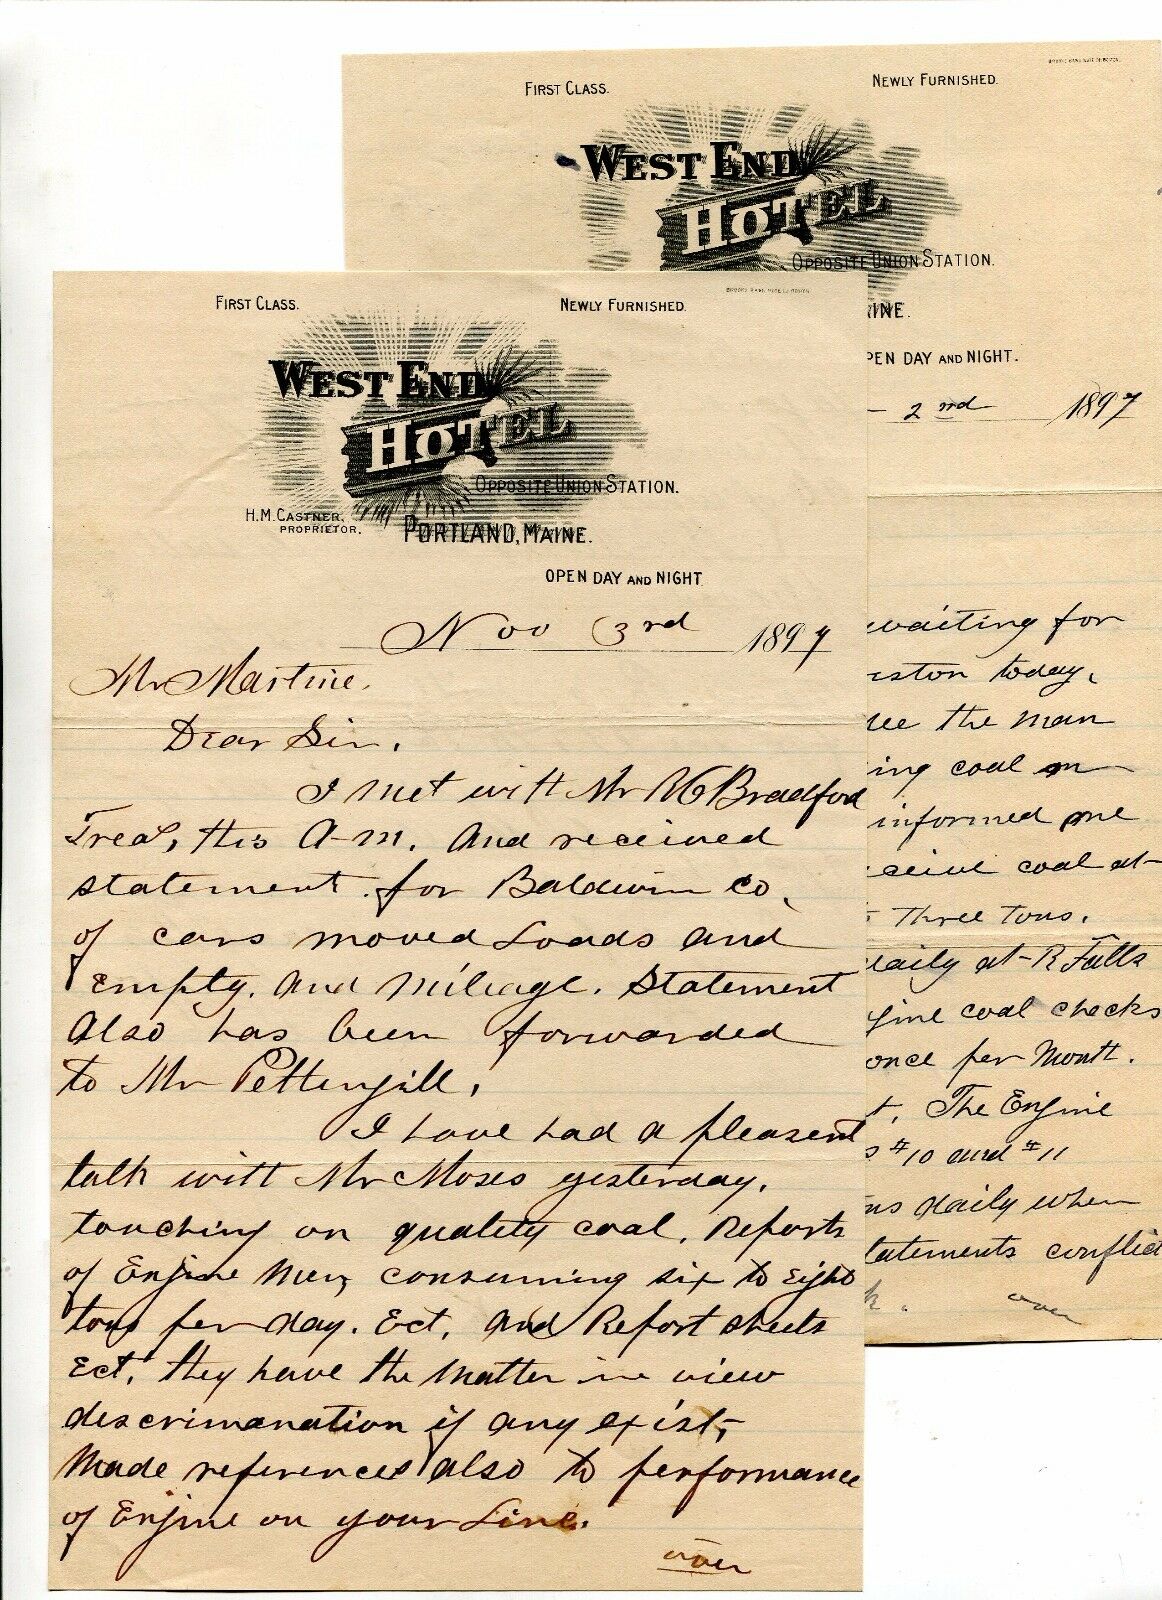 FIRST CLASS.
NEWLY FURNISHED.
WEST END
HOTEL
OPPOSITE UNION STATION.
INE.
PEN DAY AND NIGHT.
– 2nd 1897
waiting for
ston today.
see the man
ing coal on
informed me
ceive coal at
three tons.
daily at R Falls
gine coal checks
once per Month.
t, The Engine
s #10 and #11
ns daily when
tatements conflict
k. over
FIRST CLASS.
NEWLY FURNISHED.
WEST END
HOTEL
OPPOSITE UNION STATION.
H.M. CASTNER,
PROPRIETOR.
PORTLAND, MAINE.
OPEN DAY AND NIGHT
Nov 3rd 1897
Mr Martine.
Dear Sir.
I met with Mr Bradford
Treas, this A-M. And received
statement for Baldwin Co.
of cars moved Loads and
Empty. And Mileage. Statement
Also has been forwarded
to Mr Pettengill.
I have had a pleasent
talk with Mr Moses yesterday.
touching on quality coal. Reports
of Engine Men, consuming six to Eight
tons per day. Ect. And Report sheets
Ect. they have the Matter in view
descrimanation if any exist,
Made references also to performance
of Engine on your Line.
over